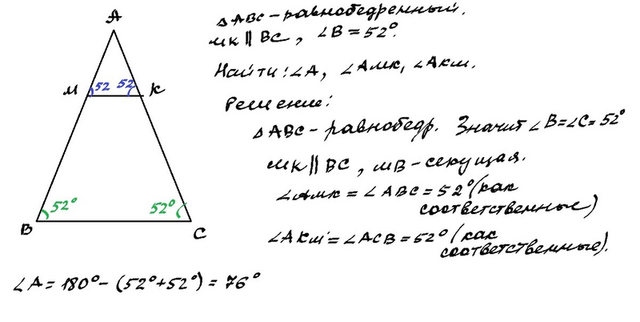 A
M 52 52 K
52° 52°
B C
∆ABC - равнобедренный.
MK || BC, ∠B = 52°.
Найти: ∠A, ∠AMK, ∠AKM.
Решение:
∆ABC - равнобедр. Значит ∠B = ∠C = 52°
MK || BC, MB - секущая.
∠AMK = ∠ABC = 52° (как
соответственные)
∠AKM = ∠ACB = 52° (как
соответственные).
∠A = 180° - (52° + 52°) = 76°